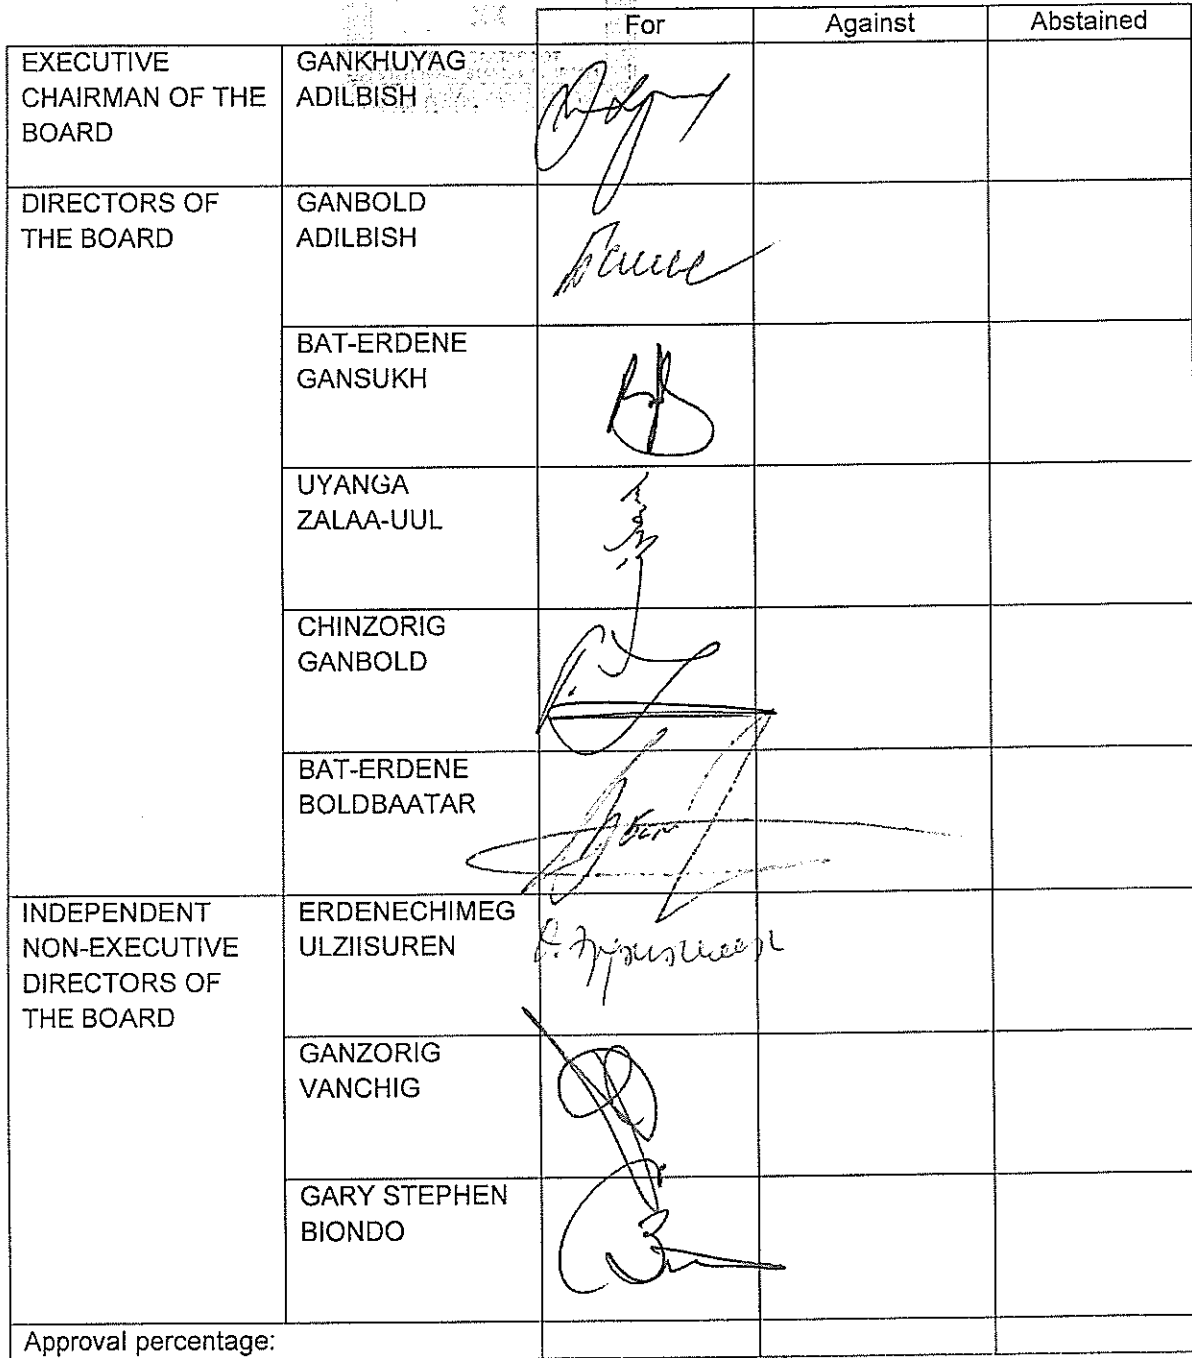 For Against Abstained
EXECUTIVE
CHAIRMAN OF THE
BOARD
GANKHUYAG
ADILBISH
DIRECTORS OF
THE BOARD
GANBOLD
ADILBISH
BAT-ERDENE
GANSUKH
UYANGA
ZALAA-UUL
CHINZORIG
GANBOLD
BAT-ERDENE
BOLDBAATAR
INDEPENDENT
NON-EXECUTIVE
DIRECTORS OF
THE BOARD
ERDENECHIMEG
ULZIISUREN
GANZORIG
VANCHIG
GARY STEPHEN
BIONDO
Approval percentage: